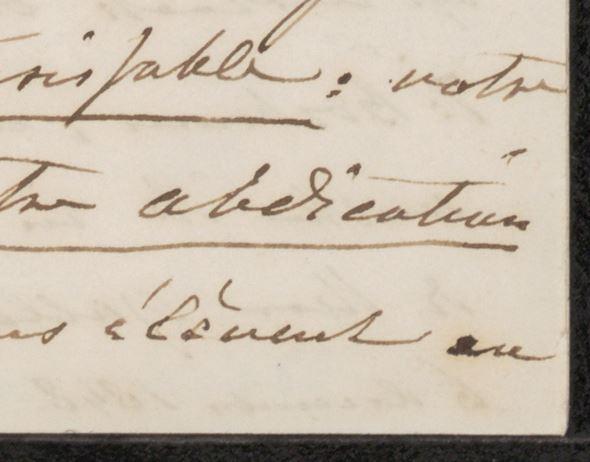 : votre
tre abdication
us élèvent au